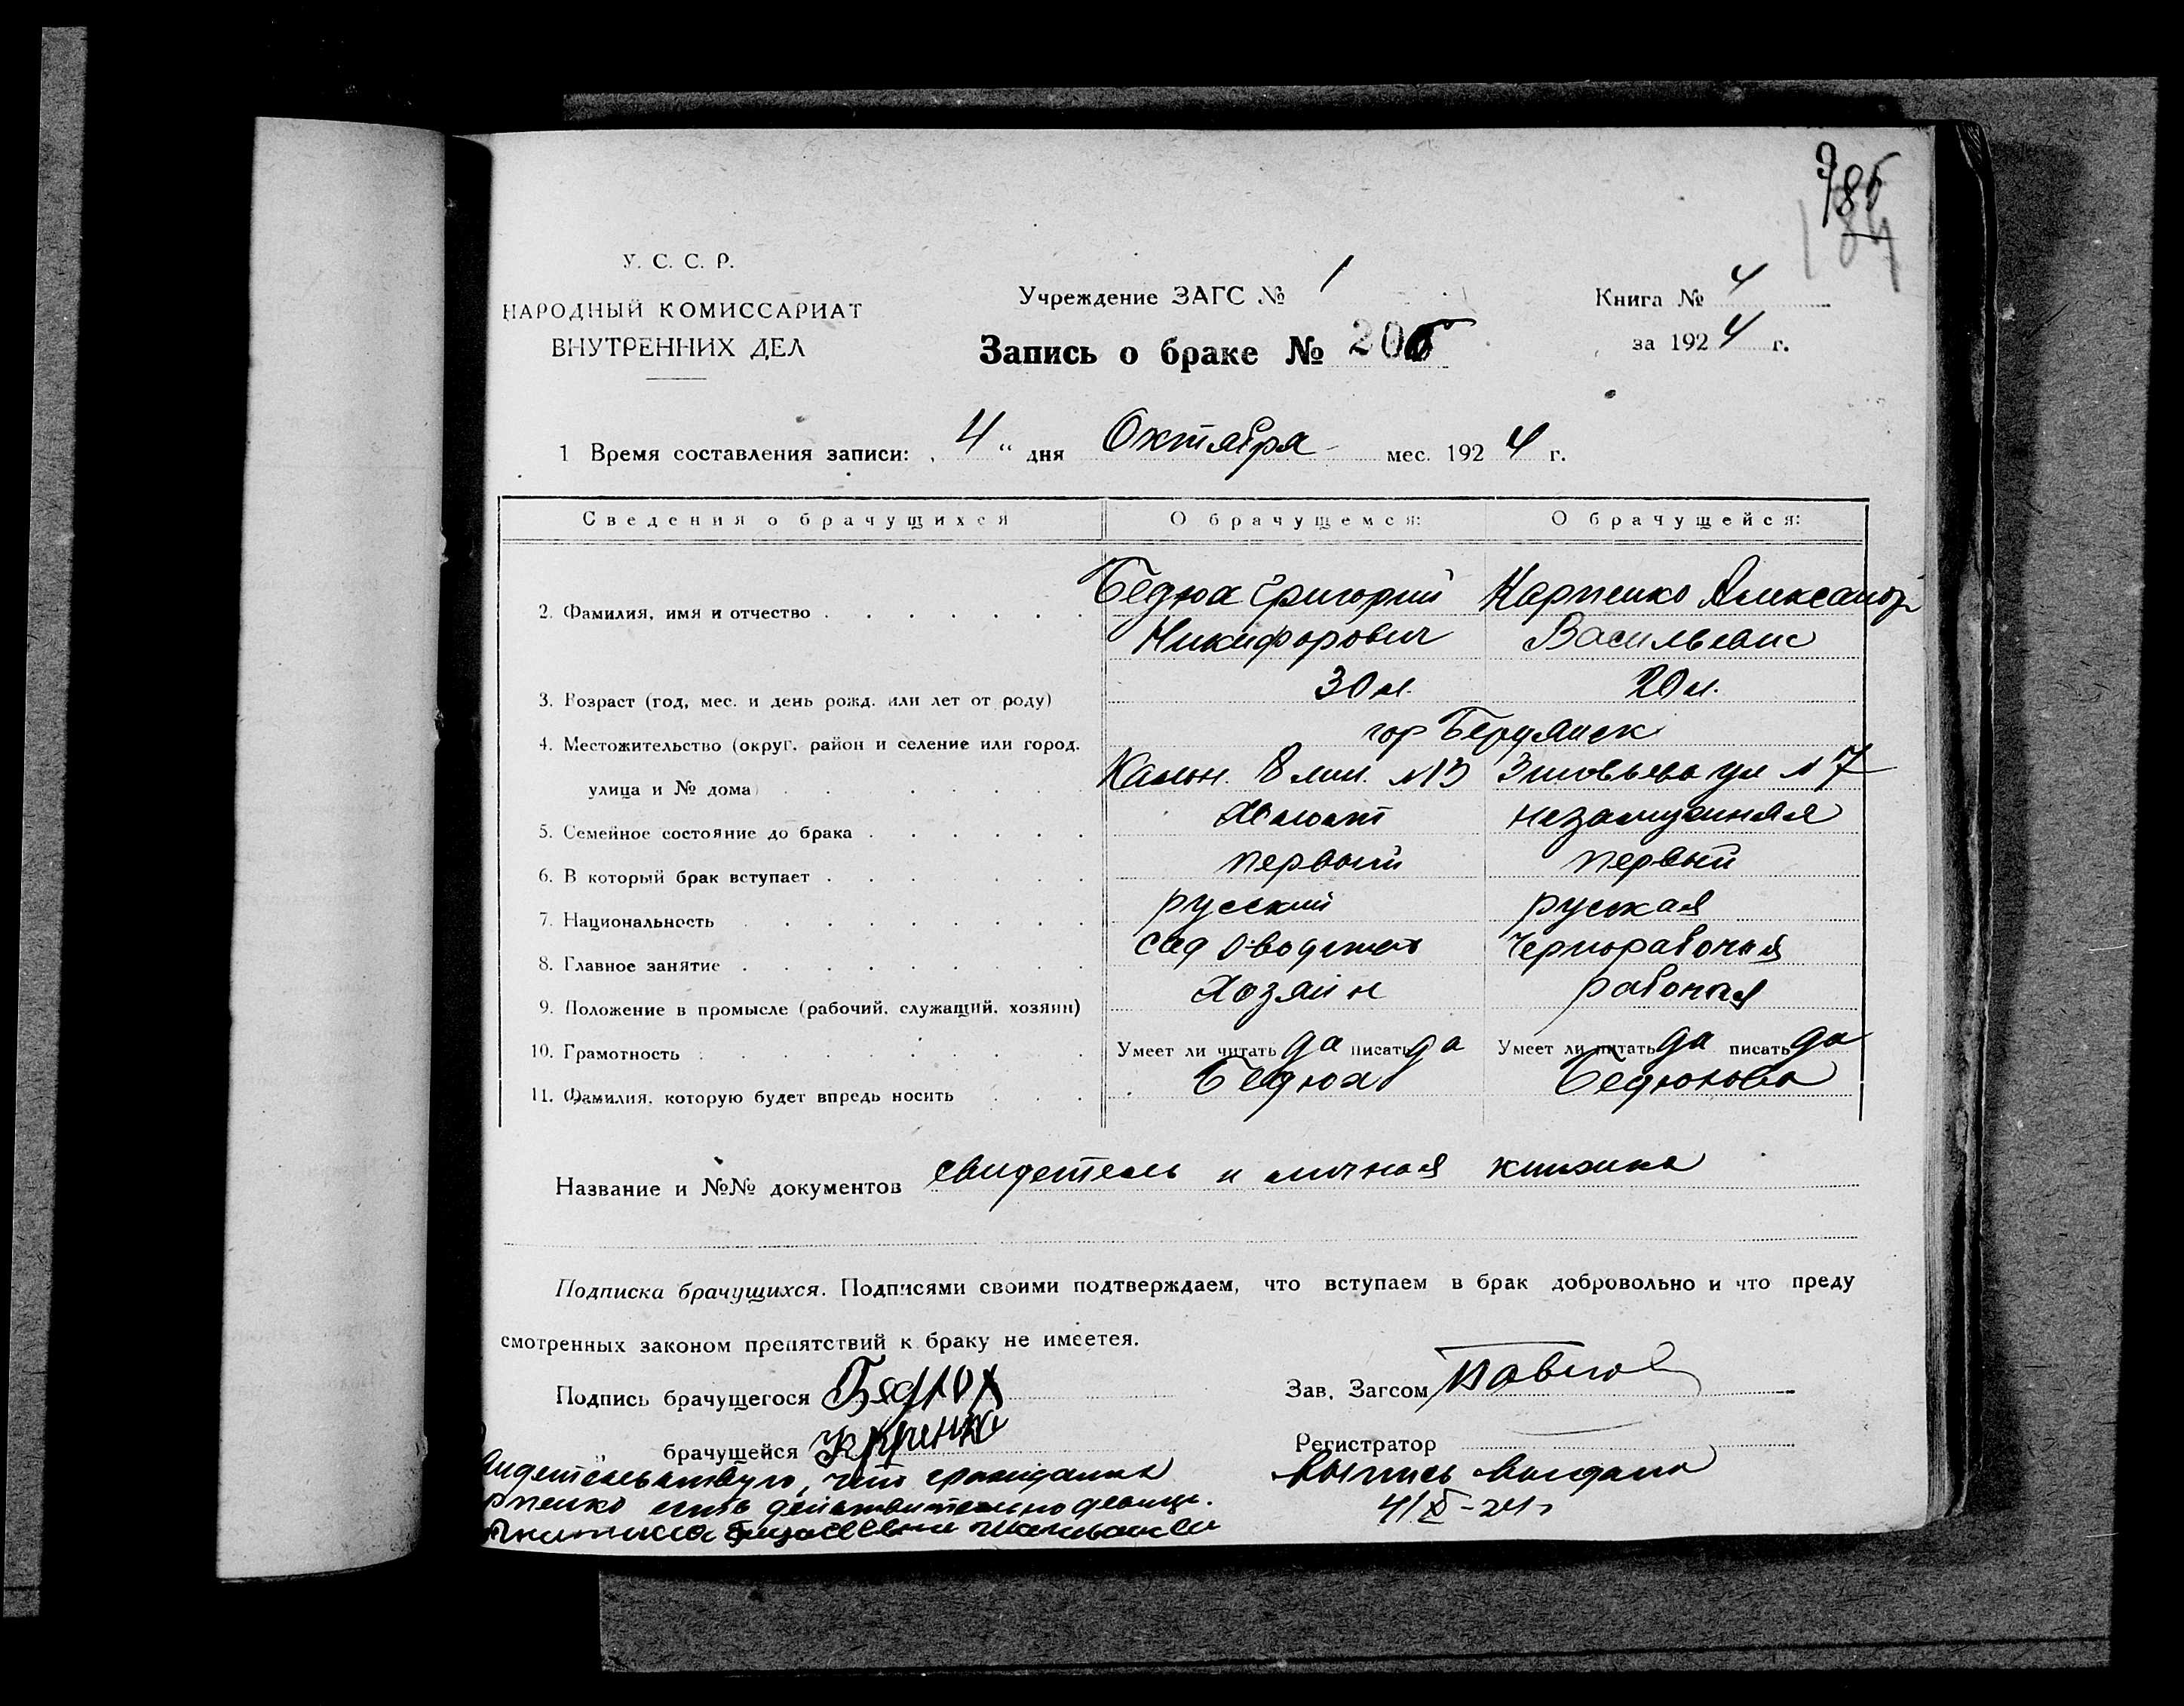 785
184
У. С. С. Р.
НАРОДНЫЙ КОМИССАРИАТ
ВНУТРЕННИХ ДЕЛ
Учреждение ЗАГС № 1
Запись о браке № 206
Книга № 4
за 1924 г.
1 Время составления записи: „4“ дня Октября мес. 1924 г.
Сведения о брачущихся О брачущемся: О брачущейся:
2. Фамилия, имя и отчество Бедюх Григорий Никифорович Карпенко Александр Васильевна
3. Возраст (год, мес. и день рожд. или лет от роду) 30 л. 20 л.
4. Местожительство (округ, район и селение или город, гор Бердянск
улица и № дома) Колон. 8 лин. №13 Зиновьева ул №7
5. Семейное состояние до брака Холост незамужняя
6. В который брак вступает первый первый
7. Национальность русский руская
8. Главное занятие садоводство Чернорабочая
9. Положение в промысле (рабочий, служащий, хозяин) Хозяин рабочая
10. Грамотность Умеет ли читать да писать да Умеет ли читать да писать да
11. Фамилия, которую будет впредь носить Бедюх Бедюхова
Название и №№ документов свидетель и личная книжка
Подписка брачущихся. Подписями своими подтверждаем, что вступаем в брак добровольно и что преду
смотренных законом препятствий к браку не имеется.
Подпись брачущегося Бедюх
Зав. Загсом
„ брачущейся Карпенко
Регистратор
видетельствую, что гражданка
рпенко есть действительно девица.
Выпись выдана
4/X-24 г